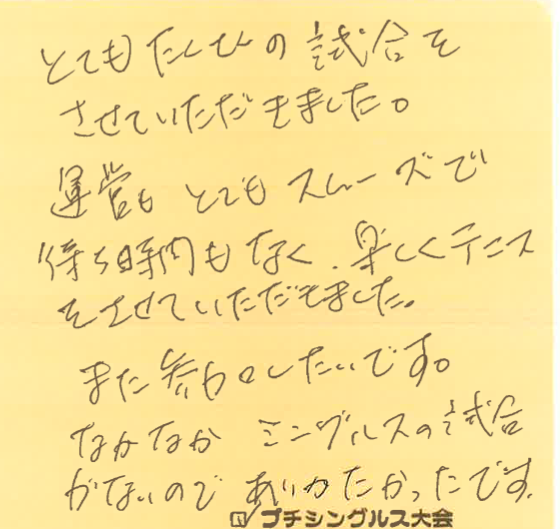 とてもたくさんの試合を
させていただきました。
運営もとてもスムーズで
待ち時間もなく、楽しくテニス
をさせていただきました。
また参加したいです。
なかなかシングルスの試合
がないのでありがたかったです。
プチシングルス大会